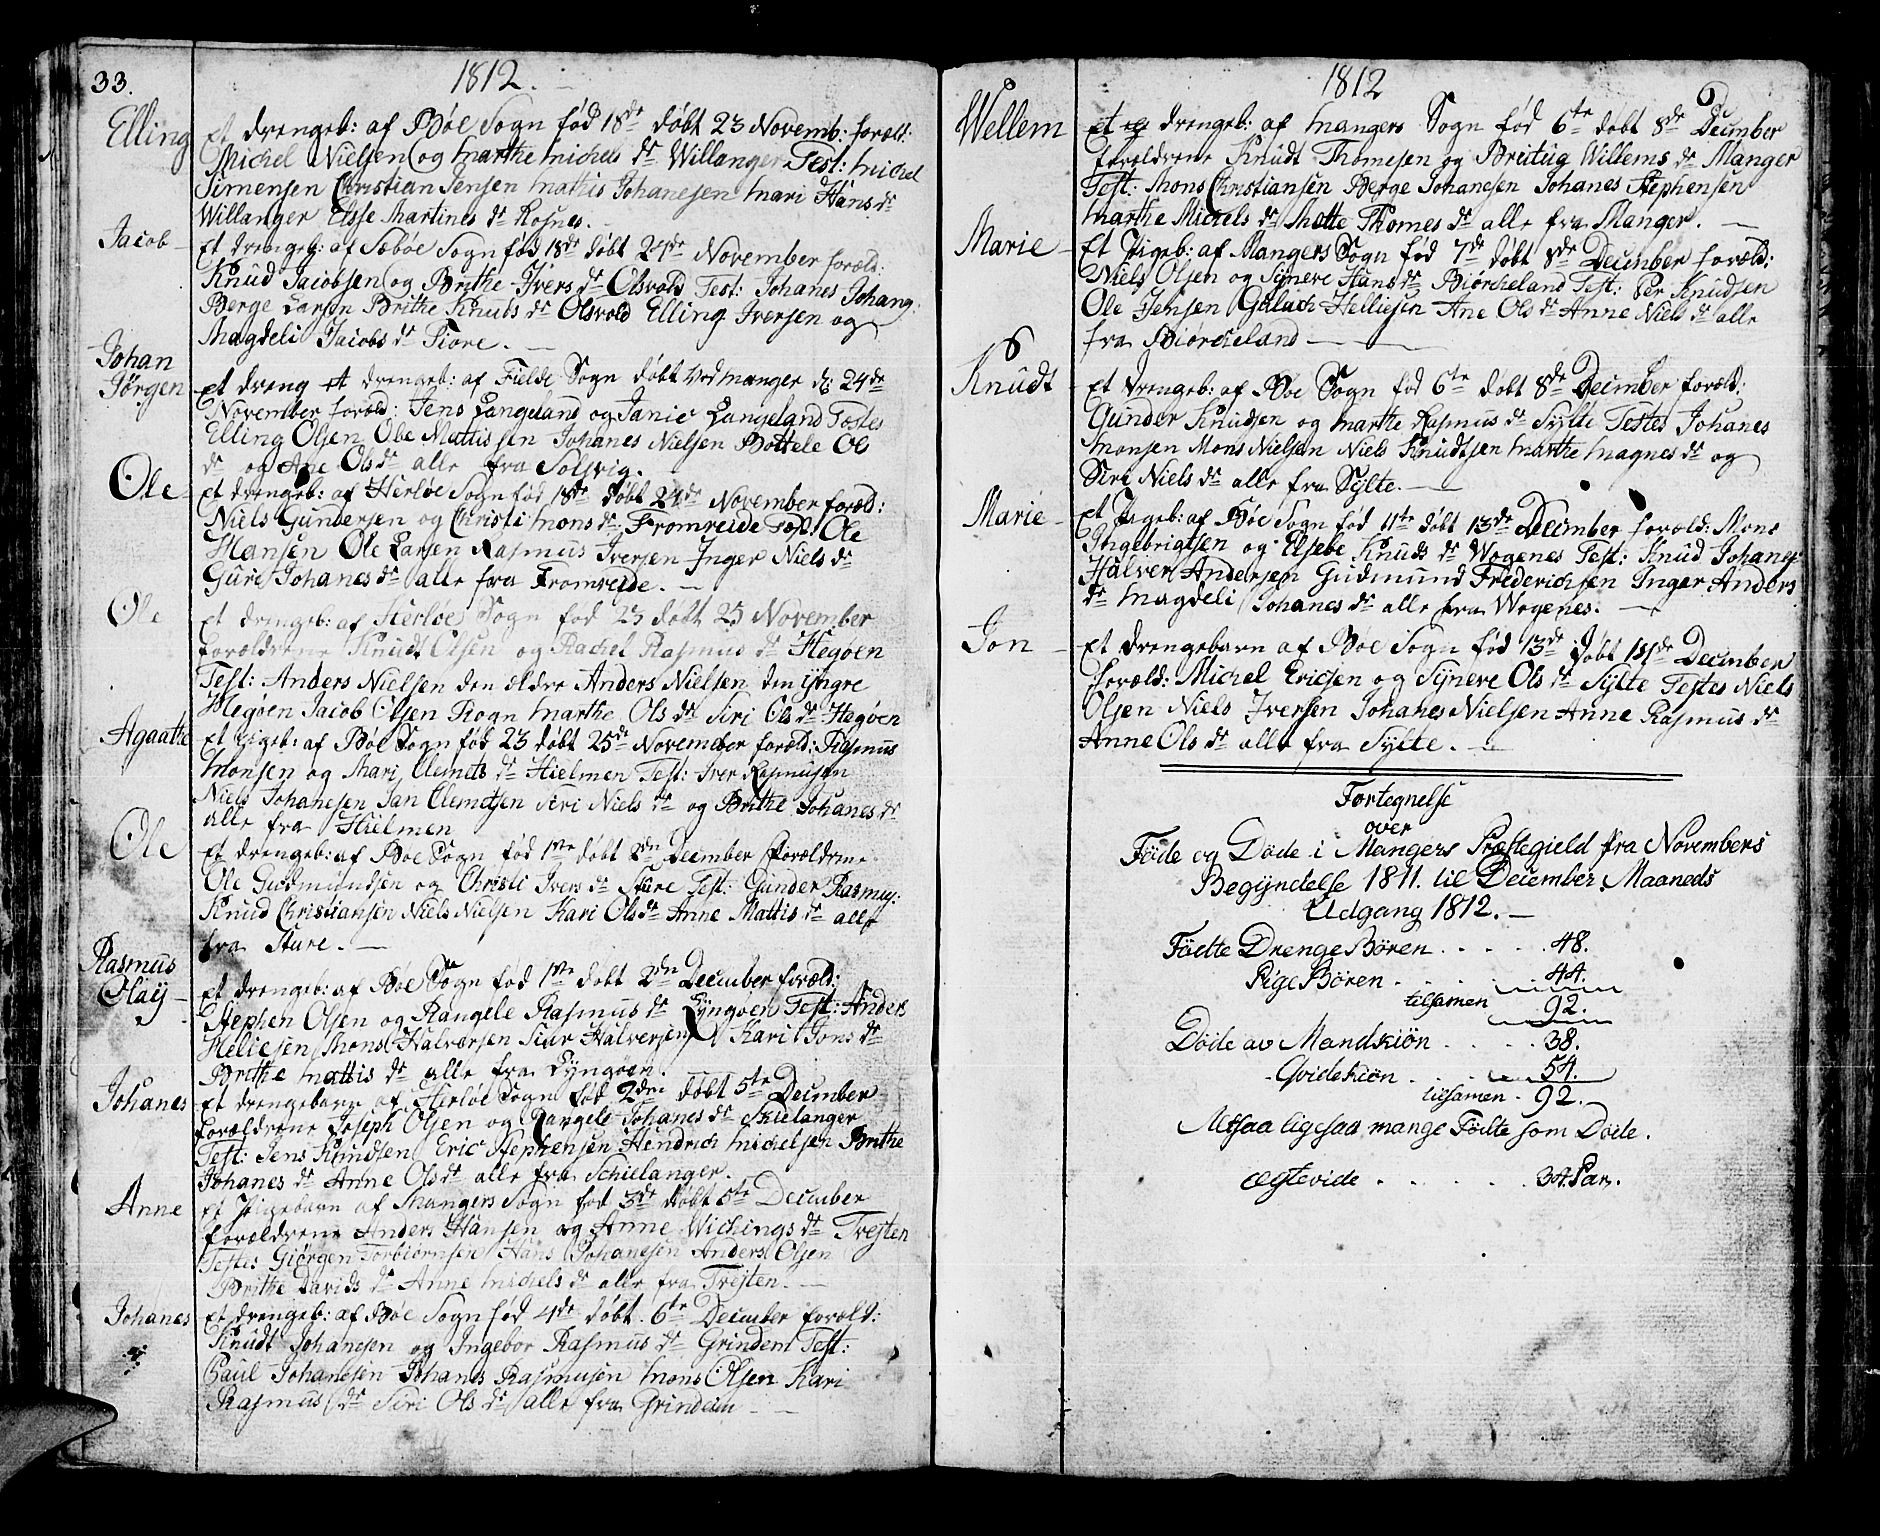 33.
1812.
Elling
Et drengeb: af Bøe Sogn fød 18de døbt 23 Novemb: foræld:
Michel Nielsen og Marthe Michels dr Willanger Test: Michel
Simensen Christian Jensen Mathis Johanesen Mari Hans dr
Willanger Elsse Martines dr Rosnes.
Jacob
Et drengeb: af Sæbøe Sogn fød 18de døbt 24de November foræld:
Knud Jacobsen og Brithe Ivers dr Olsvold Test: Johanes Johang:
Berge Larsen Brithe Knuds dr Olsvold Elling Iversen og
Magdeli Jacobs dr Fiore.
Johan
Jørgen
Et dreng et drengeb: af Fielde Sogn døbt ved Manger d: 24de
November foræld: Jens Langeland og Janic Langeland Testes
Elling Olsen Obe Mattissen Johanes Nielsen Bottele Ols
dr og Ane Ols dr alle fra Solsvig.
Ole
Et drengeb: af Herløe Sogn fød 18de døbt 24de November foræld:
Niels Gundersen og Christi Mons dr Fromreide Test: Ole
Hansen Ole Larsen Rasmus Iversen Inger Niels dr
Guri Johanes dr alle fra Fromreide.
Ole
Et drengeb: af Herløe Sogn fød 23 døbt 25 November
forældrene Knudt Olsen og Rachel Rasmus dr Hegøen
Test: Anders Nielsen den eldre Anders Nielsen den yngre
Hegøen Jacob Olsen Rogn Marthe Ols dr Siri Ols dr Hegøen
Agaathe
Et Pigeb: af Bøe Sogn fød 23 døbt 25de November foræld: Rasmus
Monsen og Mari Clemets dr Hielmen Test: Iver Rasmusen
Niels Johanesen Jan Clemetsen Siri Niels dr og Brithe Johanes dr
alle fra Hielmen
Ole
Et drengeb: af Bøe Sogn fød 1ste døbt 2den December forældrene
Ole Gudmundsen og Christi Ivers dr Sture Test: Gunder Rasmus:
Knud Christiansen Niels Nielsen Kari Ols dr Anne Mattis dr alle
fra Sture.
Rasmus
Olaij
Et drengeb: af Bøe Sogn fød 1ste døbt 2den December foræld:
Stephen Olsen og Rangele Rasmus dr Lyngøen Test: Anders
Heliesen Mons Halvorsen Siur Halversen Kari Jons dr
Brithe Mattis dr alle fra Lyngøen.
Johanes
Et drengebarn af Herløe Sogn fød 2den døbt 5te December
forældrene Joseph Olsen og Rangele Johanes dr Skielanger
Test: Jens Knudsen Eric Stephensen Hendrich Michelsen Brithe
Johanes dr Anne Ols dr alle fra Schielanger.
Anne
Et Pigebarn af Mangers Sogn fød 3de døbt 5te December
forældrene Anders Hansen og Anne Wichings dr Tresten
Testes Giørgen Torbiørnsen Hans Johanesen Anders Olsen
Brithe Davids dr Anne Michels dr alle fra Tresten.
Johanes
Et drengeb: af Bøe Sogn fød 4de døbt 6te December foræld:
Knudt Johanesen og Ingebor Rasmus dr Grindem Test:
Paul Johanesen Johanes Rasmusen Mons Olsen Kari
Rasmus dr Siri Ols dr alle fra Grindem
1812
Wellem
Et drengeb: af Mangers Sogn fød 6te døbt 8de December
forældrene Knudt Thomesen og Breitug Willems dr Manger
Test: Mons Christiansen Berge Johanesen Johanes Stephensen
Marthe Michels dr Mette Thomes dr alle fra Manger.
Marie
Et Pigeb: af Mangers Sogn fød 7de døbt 8de December foræld:
Niels Olsen og Synere Hans dr Biørckeland Test: Per Knudsen
Ole Jensen Gulach Helliesen Ane Ols dr Anne Niels dr alle
fra Biørckeland
Knudt
Et drengeb: af Bøe Sogn fød 6te døbt 8de December foræld:
Gunder Knudsen og Marthe Rasmus dr Sylte Testes Johanes
Monsen Mons Nielsen Niels Knudtsen Marthe Magnes dr og
Siri Niels dr alle fra Sylte.
Marie
Et Pigeb: af Bøe Sogn fød 11te døbt 13de December foræld: Mons
Ingebrigtsen og Elsebe Knuds dr Wogenes Test: Knud Johanes:
Halver Andersen Gudmund Frederichsen Inger Anders
dr Magdeli Johanes dr alle fra Wogenes.
Jon
Et drengebarn af Bøe Sogn fød 13de døbt December
foræld: Michel Ericsen og Synere Ols dr Sylte Testes Niels
Olsen Niels Iversen Johanes Nielsen Anne Rasmus dr
Anne Ols dr alle fra Sylte.
Fortegnelse
over
Føde og Døde i Mangers Præstegield fra Novembers
Begyndelse 1811. til December Maaneds
Udgang 1812.
Fødte Drenge Børen . . . . . 48.
Pige Børen . . . . 44.
tilsamen 92.
Døde av Mandkiøn . . . . . 38.
Qvidekiøn . . . . 54.
tilsamen . 92.
Altsaa ligesaa mange Fødte som Døde.
Ægtevide . . . . . . 34. Par.